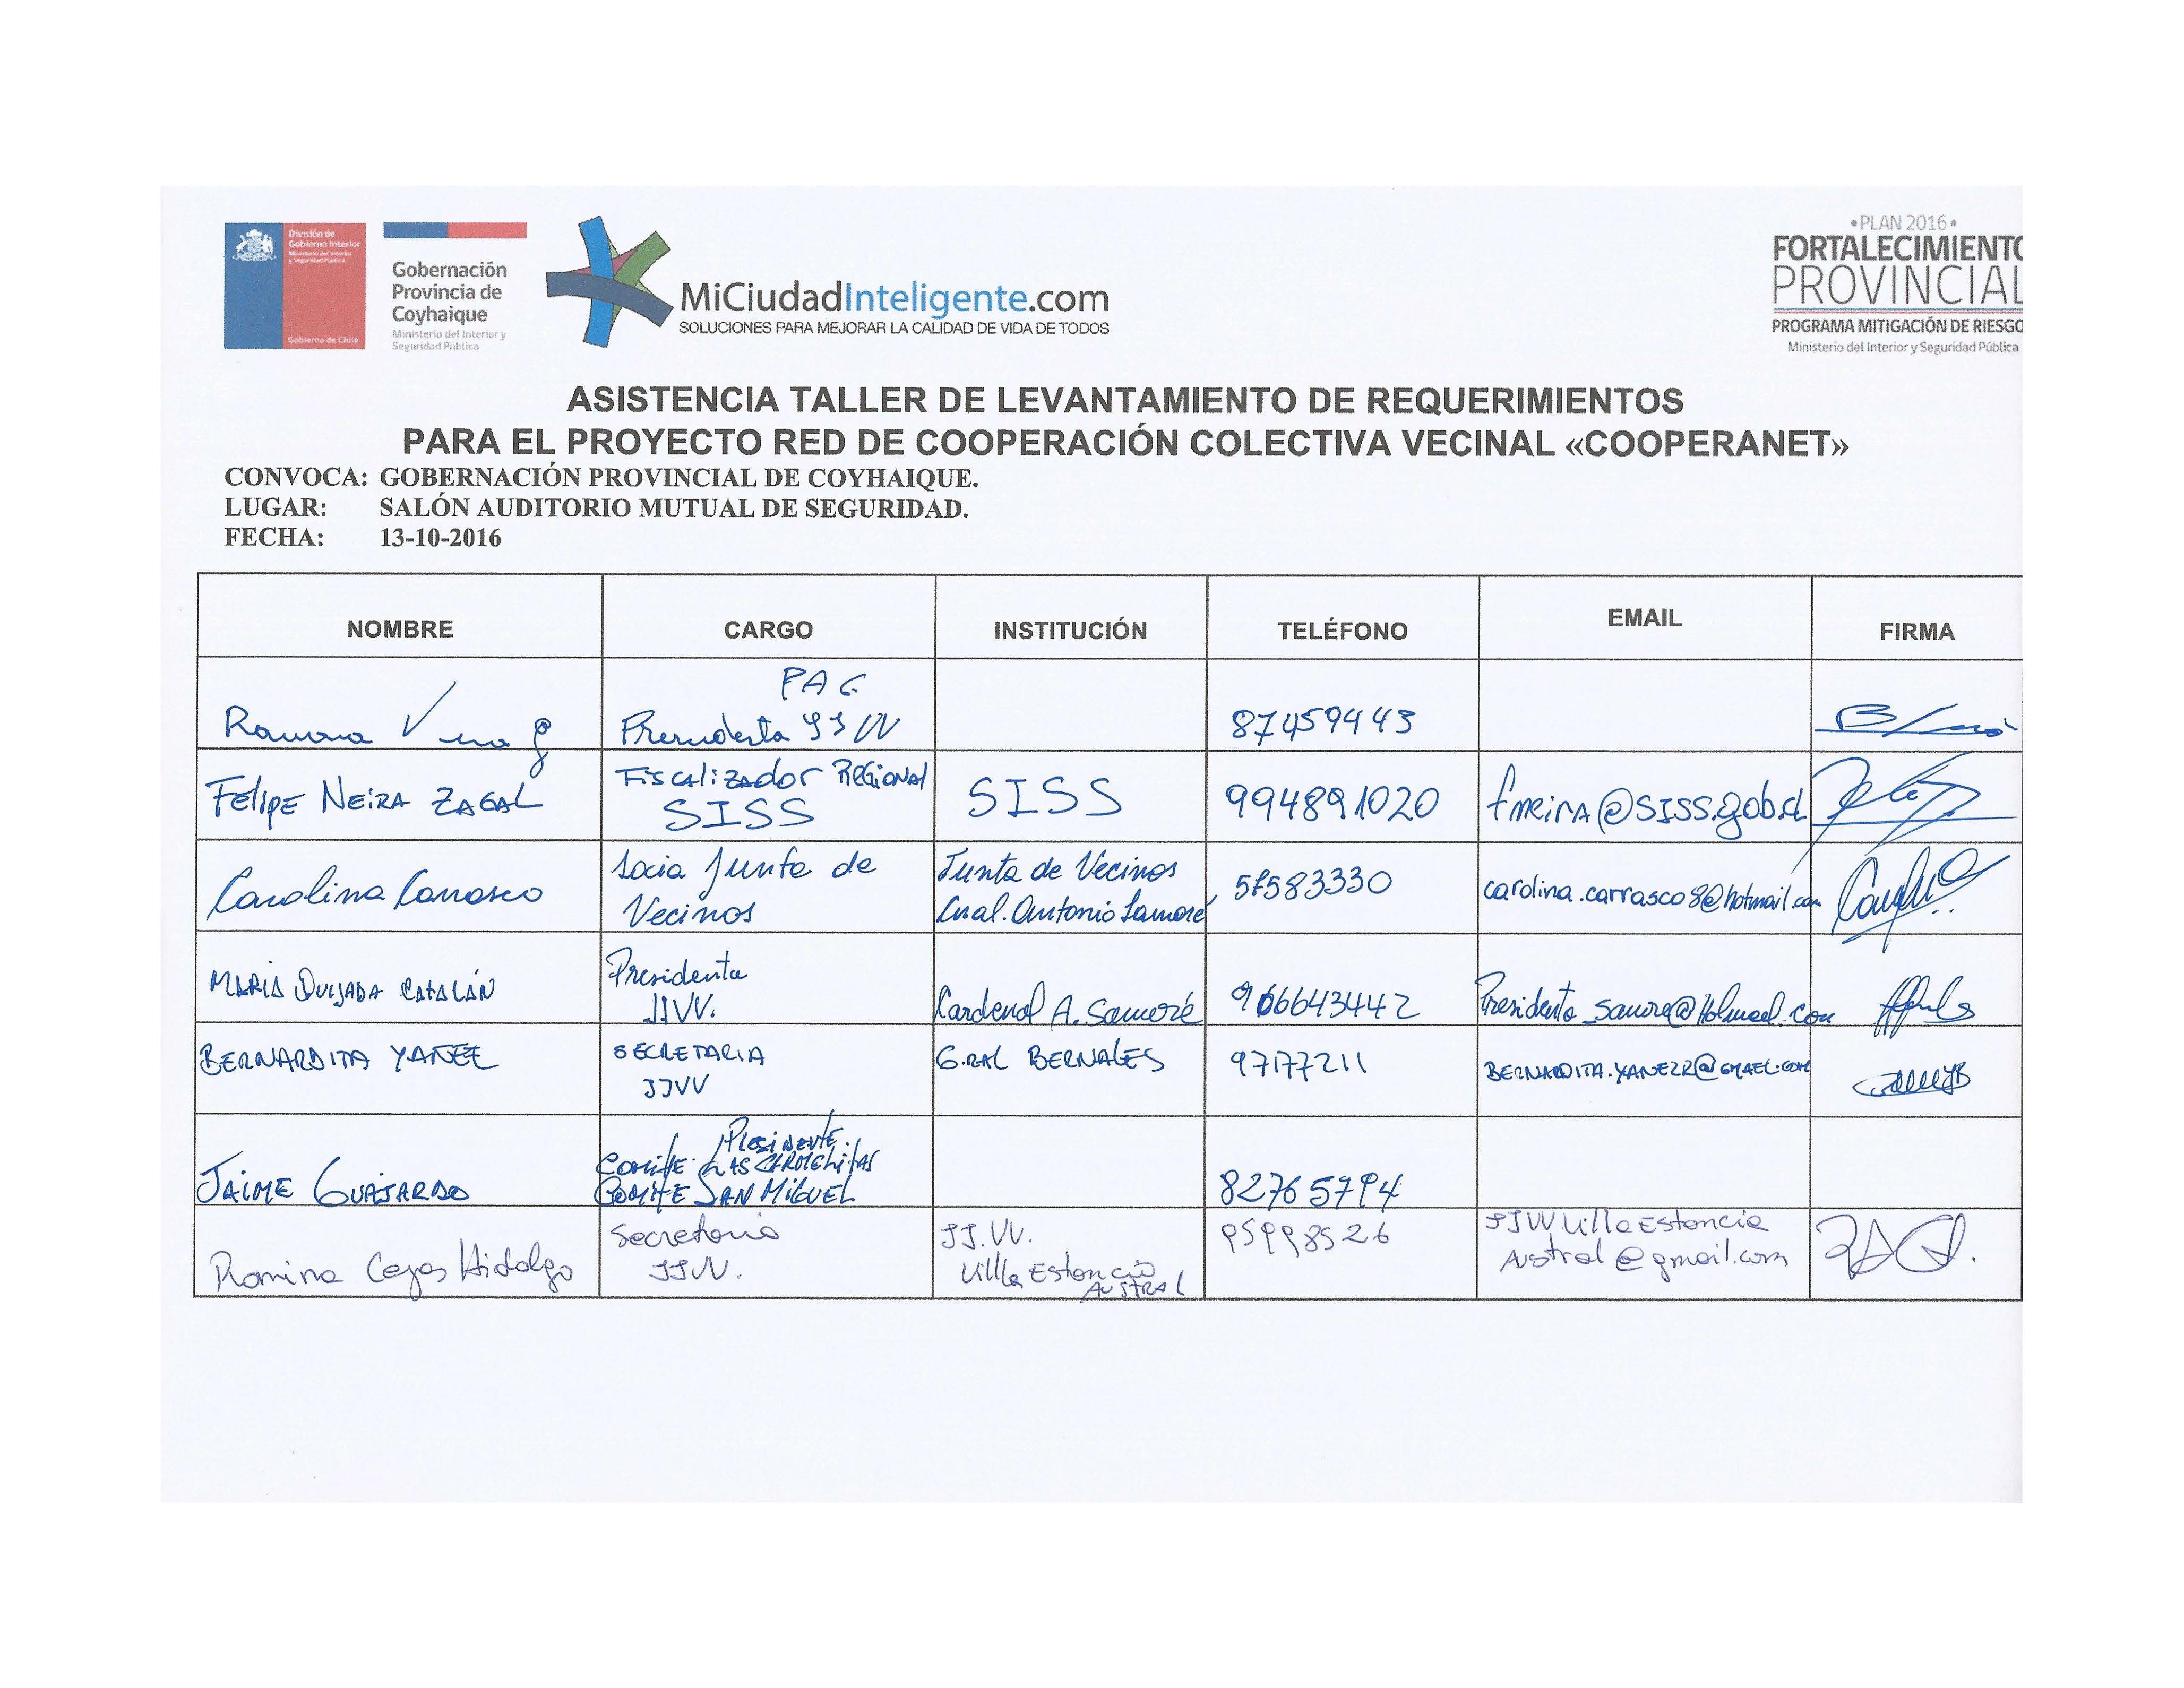 División de
Gobierno Interior
Ministerio del Interior
y Seguridad Pública
Gobierno de Chile
Gobernación
Provincia de
Coyhaique
Ministerio del Interior y
Seguridad Pública
MiCiudadInteligente.com
SOLUCIONES PARA MEJORAR LA CALIDAD DE VIDA DE TODOS
•PLAN 2016•
FORTALECIMIENTO
PROVINCIAL
PROGRAMA MITIGACIÓN DE RIESGO
Ministerio del Interior y Seguridad Pública
ASISTENCIA TALLER DE LEVANTAMIENTO DE REQUERIMIENTOS
PARA EL PROYECTO RED DE COOPERACIÓN COLECTIVA VECINAL «COOPERANET»
CONVOCA: GOBERNACIÓN PROVINCIAL DE COYHAIQUE.
LUGAR: SALÓN AUDITORIO MUTUAL DE SEGURIDAD.
FECHA: 13-10-2016
NOMBRE CARGO INSTITUCIÓN TELÉFONO EMAIL FIRMA
PAC
Presidenta JJ VV 87459443
Felipe NEIRA ZAGAL Fiscalizador Regional SISS 994891020 fneira@SISS.gob.cl
SISS
Carolina Carrasco Socia Junta de Junta de Vecinos 57583330 carolina.carrasco8@hotmail.com
Vecinos Cnal. Antonio Samoré
MARIA QUIJADA CATALÁN Presidenta Cardenal A. Samoré 966643442
JJVV.
BERNARDITA YAÑEZ SECRETARIA G.RAL BERNALES 97177211 BERNARDITA.YANEZR@GMAEL.COM
JJVV
JAIME GUAJARDO Presidente
Comite Las
COMITE SAN MIGUEL 82765794
Romina Cejas Hidalgo Secretaria JJ.VV. 95998526 JJVVVillaEstancia
JJVV. Villa Estancia Austral@gmail.com
AUSTRAL